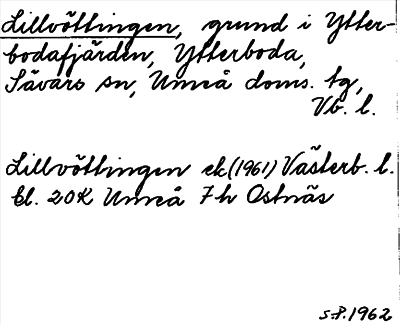 Lillvöttingen, grund i Ytter-
bodafjärden, Ytterboda,
Sävars sn, Umeå doms. tg,
Vb. l.
Lillvöttingen ek (1961) Västerb. l.
bl. 20K Umeå 7h Ostnäs
S.P. 1962